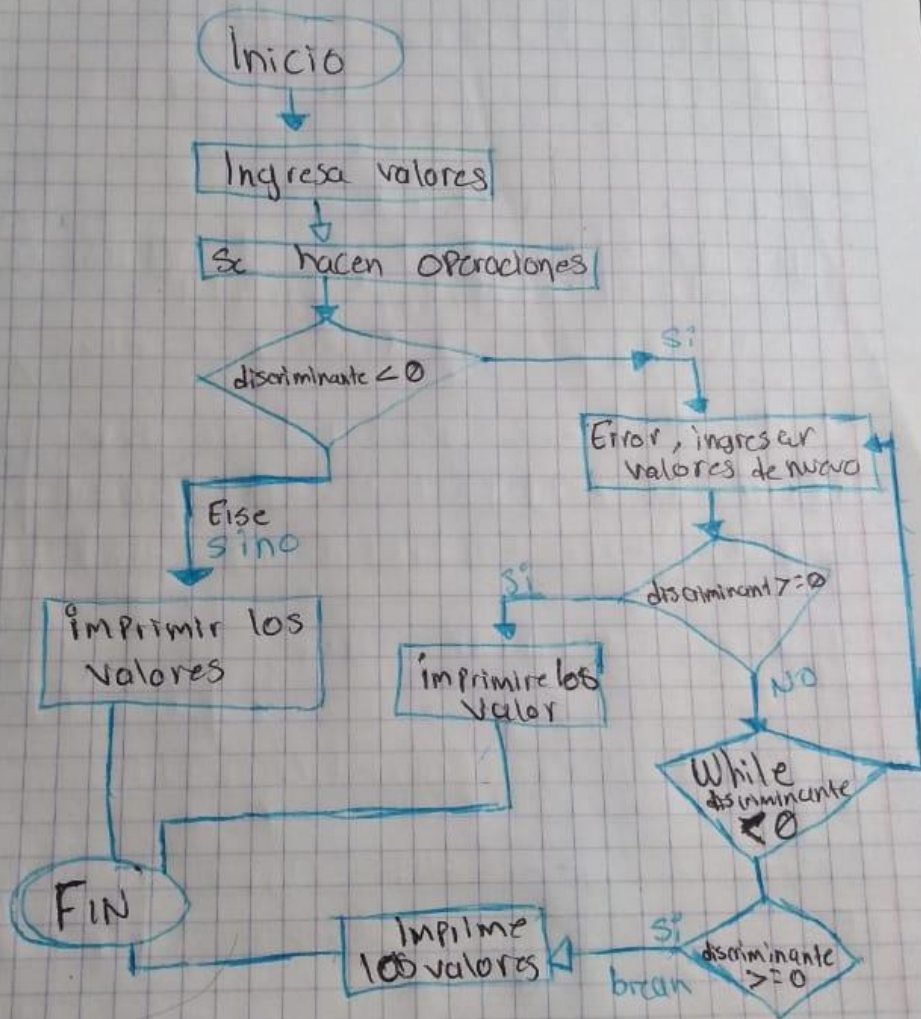 Inicio
Ingresa valores
Se hacen operaciones
discriminante < 0
Si
Error, ingresar
valores de nuevo
Else
sino
imprimir los
valores
Si
discriminant >= 0
imprimire los
valor
NO
While
discriminante
< 0
FIN
Impilme
los valores
Si
brean
discriminante
>= 0